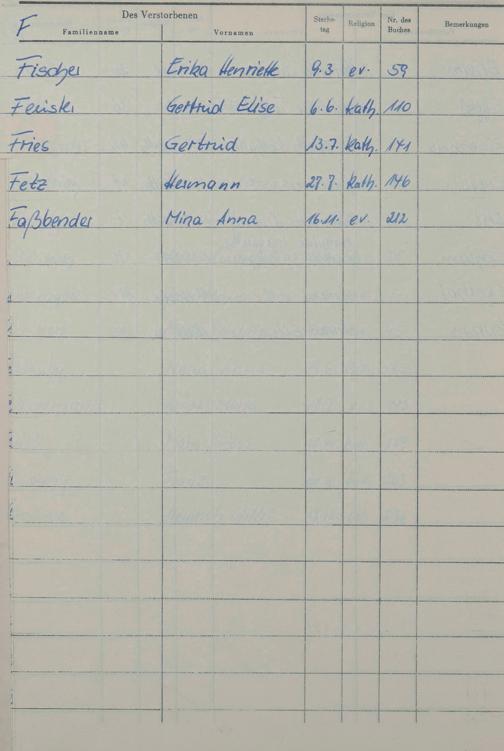 F
Des Verstorbenen
Familienname Vornamen Sterbe-tag Religion Nr. des Buches Bemerkungen
Fischer Erika Henriette 9.3. ev. 59
Gertrud Elise 6.6. kath. 110
Fries Gertrud 13.7. kath. 141
Fetz Hermann 27.7. kath. 146
Faßbender Mina Anna 16.11. ev. 212